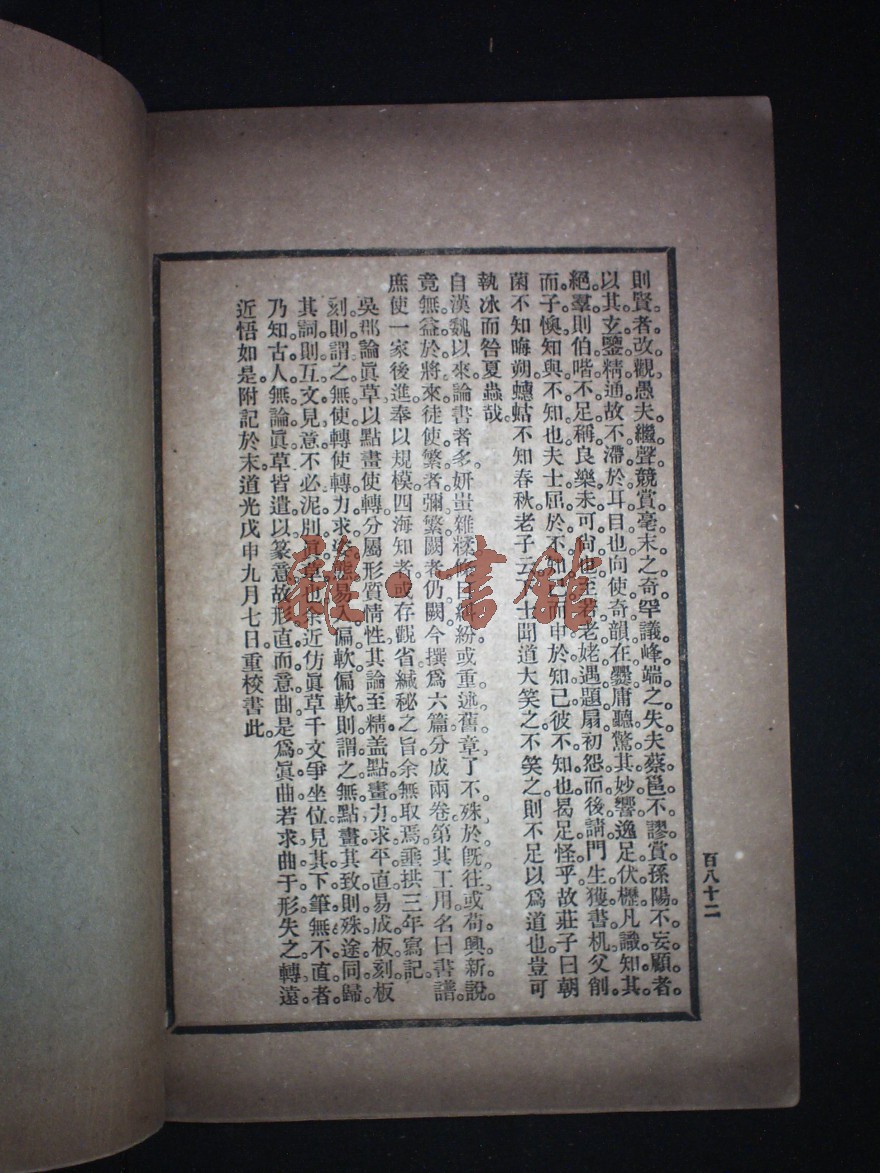 則賢者改觀。愚夫繼聲。競賞毫末之奇。罕議峰端之失。夫蔡邕不謬賞。孫陽不妄顧者。
以其玄鑒精通。故不滯於耳目也。向使奇韻在爨。庸聽驚其妙響。逸足伏櫪。凡識知其
絕羣。則伯喈不足稱。良樂未可尚也。至若老姥遇題扇。初怨而後請。門生獲書机。父削
而子懊。知與不知也。夫士屈於不知己而申於知己。彼不知也。曷足怪乎。故莊子曰朝
菌不知晦朔。蟪蛄不知春秋。老子云下士聞道大笑之。不笑之則不足以爲道也。豈可
執冰而咎夏蟲哉
自漢魏以來論書者多。妍蚩雜糅。條目糾紛。或重述舊章。了不殊於旣往。或苟興新說。
竟無益於將來。徒使繁者彌繁。闕者仍闕。今撰爲六篇。分成兩卷。第其工用。名曰書譜。
庶使一家後進。奉以規模。四海知者。或存觀省。緘秘之旨。余無取焉。垂拱三年寫記。
吳郡論眞草以點畫使轉分屬形質情性。其論至精。蓋點畫力求平直。易成板刻。板
刻則謂之無使轉。使轉力求姿態。易入偏軟。偏軟則謂之無點畫。其致則殊途同歸。
其詞則互文見意。不必泥別眞草也。余近仿眞草千文爭坐位。見其下筆無不直者。
乃知古人無論眞草。皆遣以篆意。故形直而意曲。是爲眞曲。若求曲于形。失之轉遠
近悟如是。附記於末。道光戊申九月七日重校書此。
百八十二
雜·書館